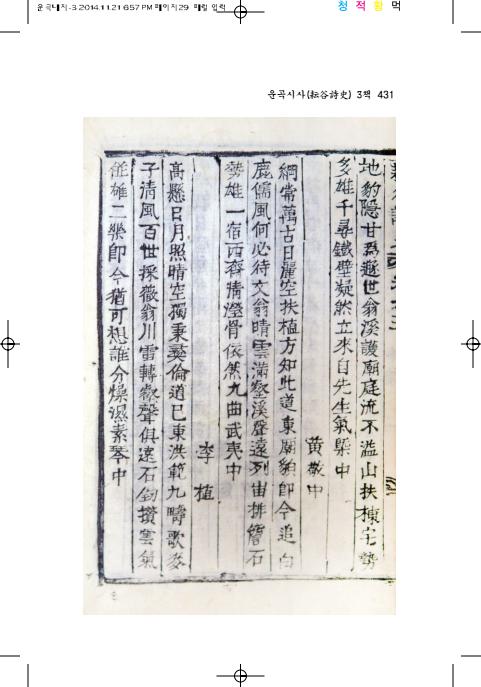 운곡내지-3 2014.11.21 6:57 PM 페이지29 매킬 입력
청 적 황 먹
운곡시사(耘谷詩史) 3책 431
地豹隱甘爲遯世翁溪護廟庭流不濫山扶棟宅勢
多雄千尋鐵壁凝然立來自先生氣槩中
黃敬中
綱常萬古日麗空扶植方知此道東廟貌卽今追白
鹿儒風何必待文翁晴雲滿壑溪聲遠列岫排簷石
勢雄一宿西齋淸瀅骨依然九曲武夷中
李植
高懸日月照晴空獨秉彛倫道已東洪範九疇歌麥
子淸風百世採薇翁川雷轉壑聲俱遠石釰攢雲氣
雄二樂卽今猶可想誰分燥濕素琴中